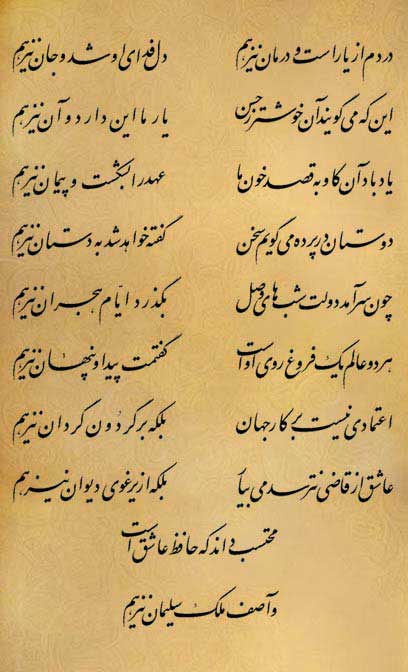 دردم از یار است و درمان نیز هم دل فدای او شد و جان نیز هم
این که می گویند آن خوشتر ز حسن یار ما این دارد و آن نیز هم
یاد باد آن کاو به قصد خون ما عهد را بشکست و پیمان نیز هم
دوستان در پرده می گویم سخن گفته خواهد شد به دستان نیز هم
چون سرآمد دولت شب های وصل بگذرد ایّام هجران نیز هم
هر دو عالم یک فروغ روی اوست گفتمت پیدا و پنهان نیز هم
اعتمادی نیست بر کار جهان بلکه بر گردون گردان نیز هم
عاشق از قاضی نترسد می بیار بلکه از یرغوی دیوان نیز هم
محتسب داند که حافظ عاشق است
و آصف ملک سلیمان نیز هم